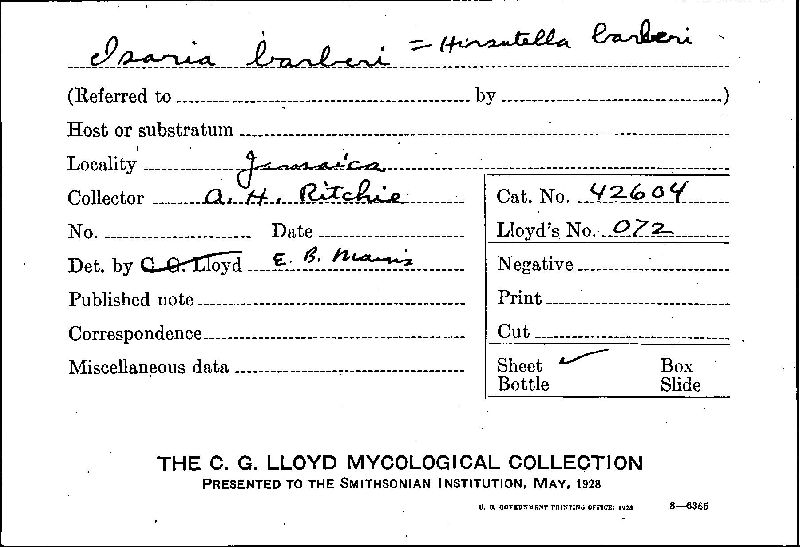 Isaria barberi = Hirsutella barberi
(Referred to by )
Host or substratum
Locality Jamaica
Collector A. H. Ritchie
Cat. No. 42604
No. Date
Lloyd's No. 072
Det. by C. G. Lloyd E. B. Mains
Negative
Published note
Print
Correspondence
Cut
Miscellaneous data
Sheet ✓ Box
Bottle Slide
THE C. G. LLOYD MYCOLOGICAL COLLECTION
PRESENTED TO THE SMITHSONIAN INSTITUTION, MAY, 1928
U. S. GOVERNMENT PRINTING OFFICE: 1928 8—6365